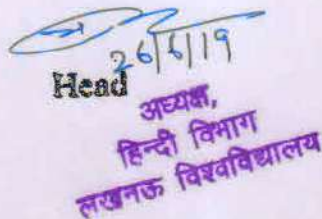 26/6/19
Head
अध्यक्ष,
हिन्दी विभाग
लखनऊ विश्वविद्यालय